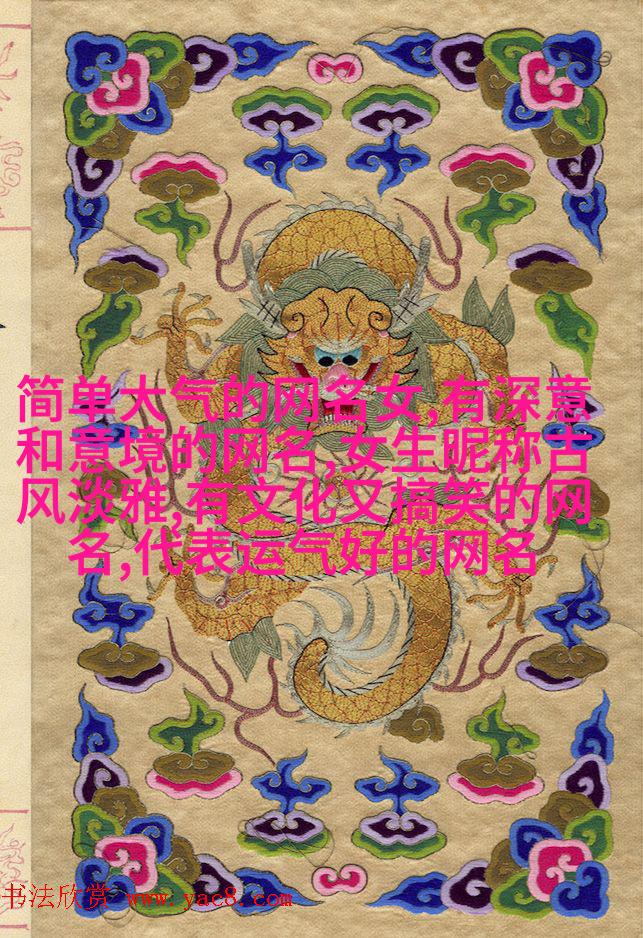 简单大气的网名女,有深意
和意境的网名,女生昵称古
风淡雅,有文化又搞笑的网
名,代表运气好的网名
书法欣赏 www.yac8.com